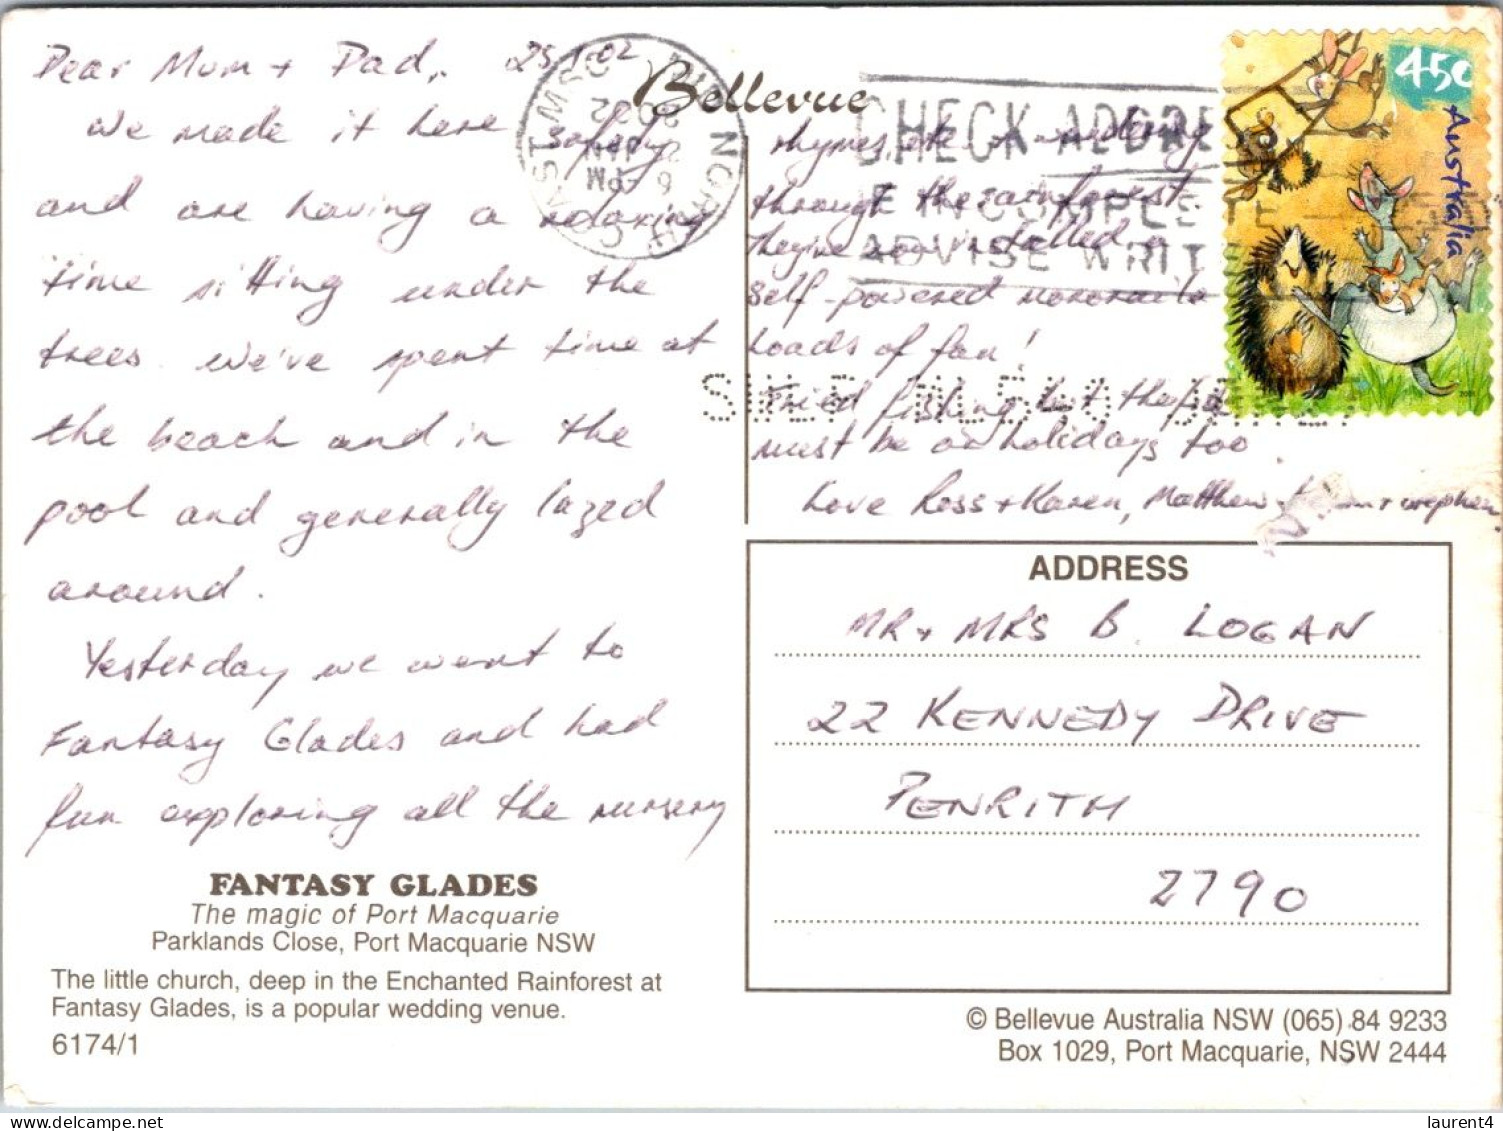 Dear Mum + Dad, 25.1.02
We made it here safely
and are having a relaxing
time sitting under the
trees. We've spent time at
the beach and in the
pool and generally lazed
around.
Yesterday we went to
Fantasy Glades and had
fun exploring all the nursery
FANTASY GLADES
The magic of Port Macquarie
Parklands Close, Port Macquarie NSW
The little church, deep in the Enchanted Rainforest at
Fantasy Glades, is a popular wedding venue.
6174/1
Bellevue
rhymes etc + wandering
through the rainforest.
They've installed a
self-powered monorail
loads of fun!
Tried fishing but the
must be on holidays too.
Love Ross + Karen, Matthew
45c
Australia
CHECK ADDRE
IF INCOMPLETE
ADVISE WRITE
ADDRESS
MR + MRS B. LOGAN
22 KENNEDY DRIVE
PENRITH
2790
© Bellevue Australia NSW (065) 84 9233
Box 1029, Port Macquarie, NSW 2444
laurent4